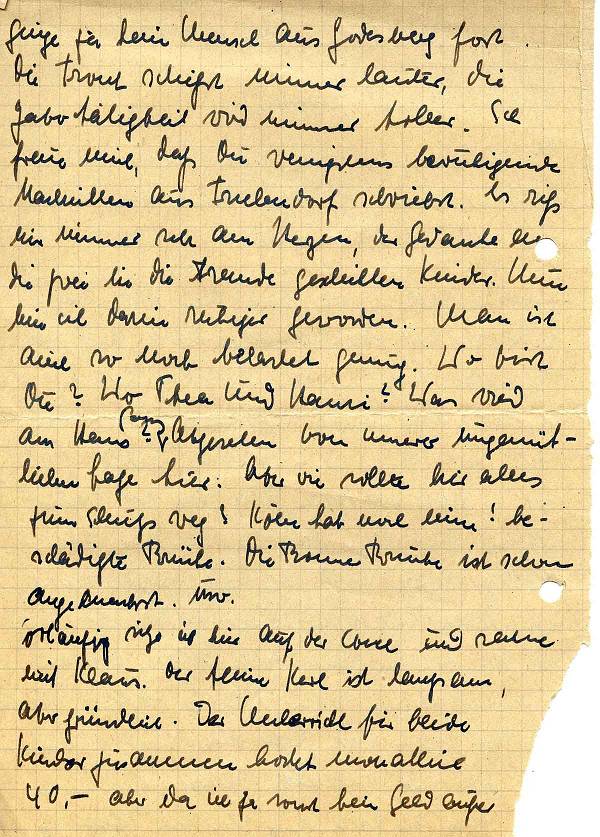 ginge ja kein Mensch aus Godesberg fort.
Die Front schiesst immer lauter, die
Jabotätigkeit wird immer toller. Ich
freue mich, daß Du wenigstens beruhigende
Nachrichten aus schriebst. Es riß
mir immer sehr am Herzen, der Gedanke an
die frei in die Fremde Kinder. Nun
bin ich darin ruhiger geworden. Man ist
auch so noch belastet genug. Wo bist
Du? Wo Thea und Hansi? Was wird
am Hans Abgesehen von unserer ungemüt-
lichen Lage hier. Aber wie sollte hier alles
zum weg! Köln hat noch eine! be-
schädigte Brücke. Die Bonner Brücke ist schon
angeknackst. usw.
orläufig sitze ich hier auf der Couch und
mit Klaus. Der kleine Kerl ist langsam,
aber gründlich. Der Unterricht für beide
Kinder zusammen kostet monatlich
40,- aber da ich ja sonst kein Geld